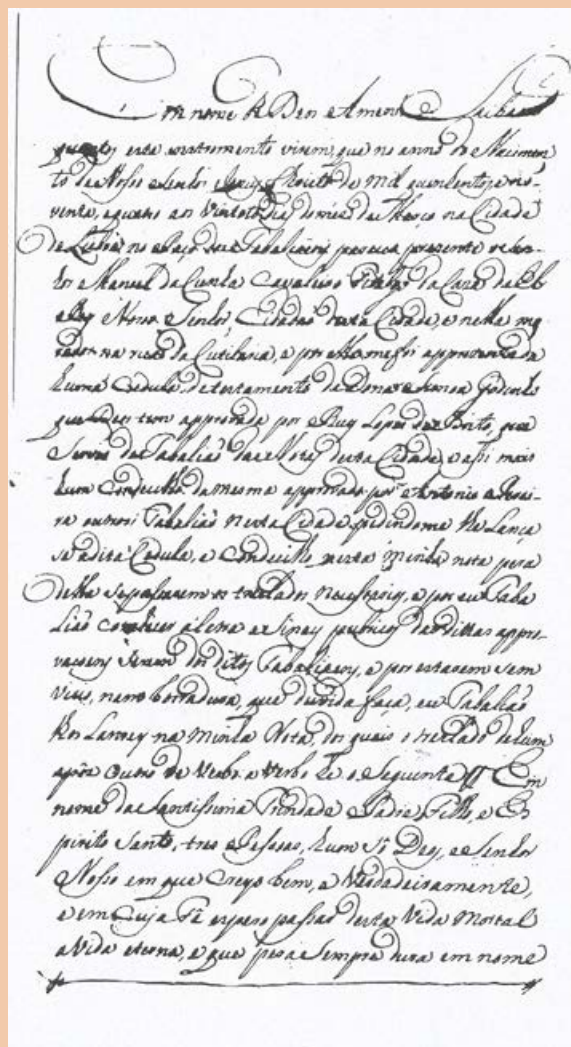 Em nome de Deos Amen Saibaõ
quantos este instromento virem, que no anno do Nascimen
to de Nosso Senhor Jesus Christo de mil quinhentos e no-
venta, e quatro aos vintoto dia do mes de Março na Cidade
de Lisboa no Paço dos Tabalioens pareceo presente o Se-
nhor Manuel da Cunha Cavaleiro Fidalgo da Caza de El
Rey Nosso Senhor, Cidadaõ desta Cidade, e nella mo
rador na rua da Cutilaria, e por elle me foi appresentada
huma Cedula de testamento de Dona
que Deos tem approvada por Ruy Lopes de Brito, que
Serve de Tabaliaõ das Notas desta Cidade, e assi mais
hum Condicilho da mesma approvado por Antonio
outrosi Tabaliaõ nesta Cidade pedindome lhe Lança
se a dita Cedula, e Condicilho nesta minha nota pera
della se passarem os treslados necessarios, e por eu Taba
liaõ conhecer a letra e Sinaes publicos das dittas appro-
vaçoens serem dos ditos Tabalioens, e por estarem sem
vicio, nem borradura, que duvida faça, eu Tabaliaõ
os Lancey na minha Nota, dos quais o treslado de hum
apos outro de Verbo a Verbo he o Seguinte Em
nome da Santissima Trindade Padre, Filho, e Es
pirito Santo, tres Pessoas, hum Só Deos, e Senhor
Nosso em que Creyo bem, e Verdadeiramente,
e em Cuja Fé espero passar desta Vida Mortal
a Vida eterna, e que pera sempre dura em nome